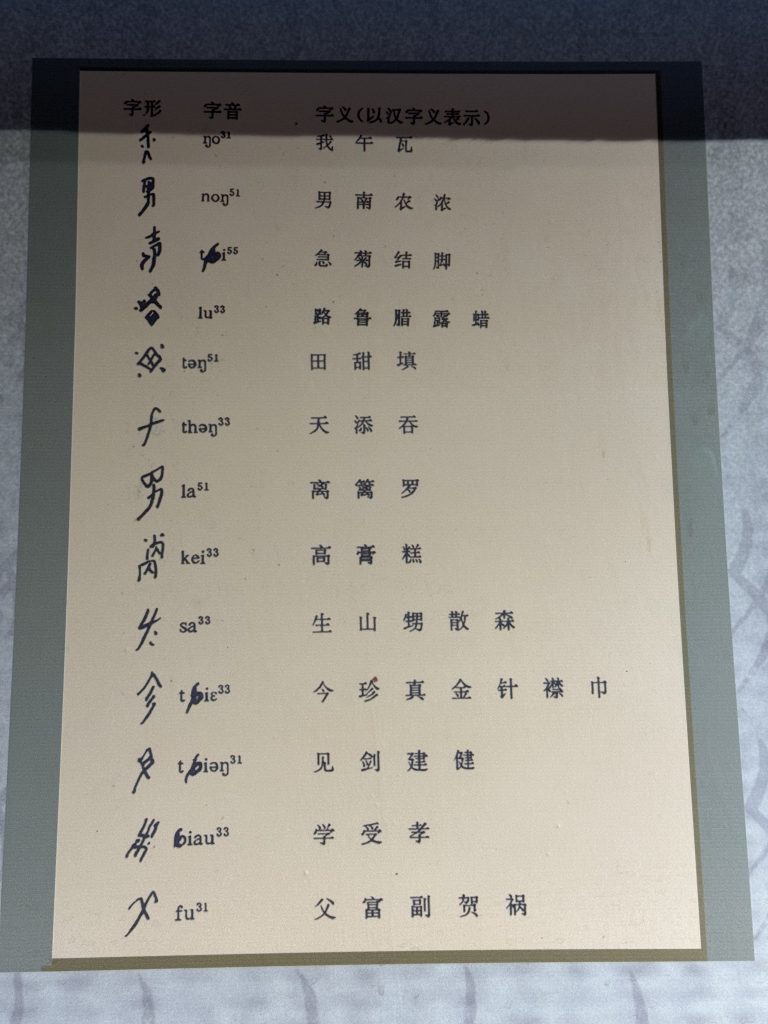 字形 字音 字义(以汉字义表示)
ŋo³¹ 我 午 瓦
noŋ⁵¹ 男 南 农 浓
tɕi⁵⁵ 急 菊 结 脚
lu³³ 路 鲁 腊 露 蜡
təŋ⁵¹ 田 甜 填
thəŋ³³ 天 添 吞
la⁵¹ 离 篱 罗
kei³³ 高 膏 糕
sa³³ 生 山 甥 散 森
tɕiɛ³³ 今 珍 真 金 针 襟 巾
tɕiəŋ³¹ 见 剑 建 健
ɕiau³³ 学 受 孝
fu³¹ 父 富 副 贺 祸